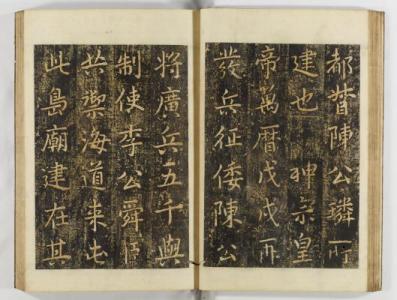 都督陳公璘所
建也 神宗皇
帝萬曆戊戌再
發兵征倭陳公
將廣兵五千與
制使李公舜臣
共禦海道来屯
此島廟建在其